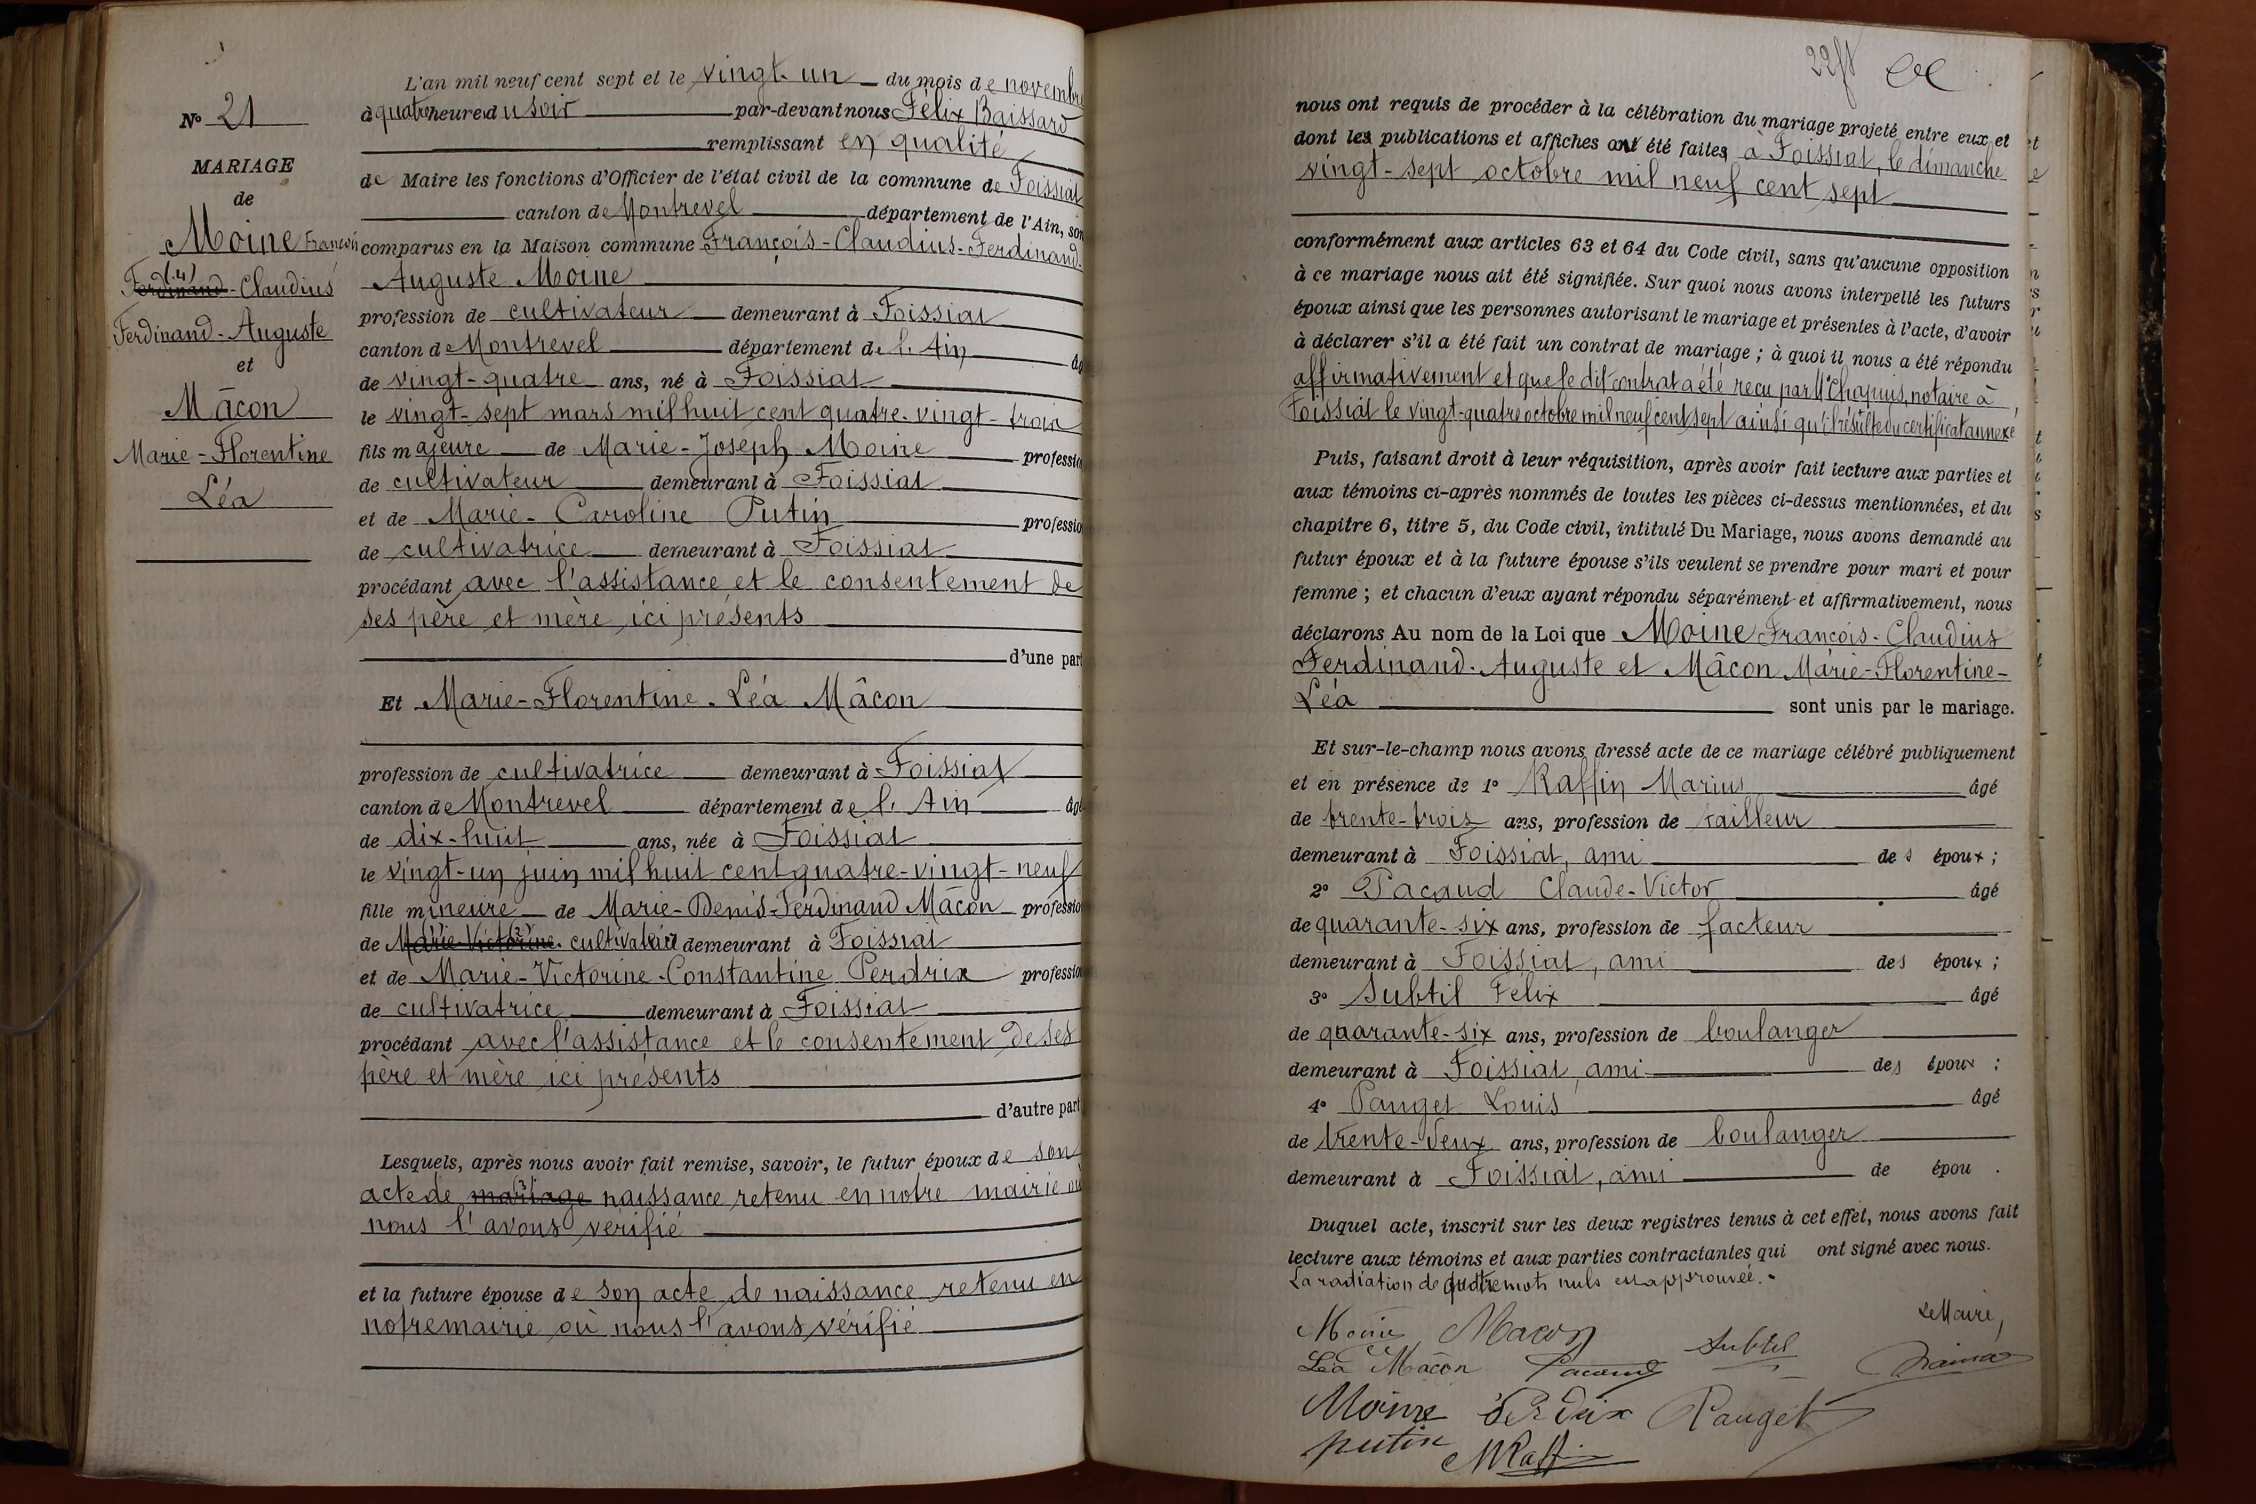 N° 21
MARIAGE
de
Moine François
Ferdinand - Claudius
Ferdinand - Auguste
et
Mâcon
Marie - Florentine
Léa
L'an mil neuf cent sept et le vingt-un du mois de novembre
à quatre heure du soir par-devant nous Félix Baissard
remplissant en qualité
de Maire les fonctions d'Officier de l'état civil de la commune de Foissiat
canton de Montrevel département de l'Ain, son
comparus en la Maison commune François - Claudius - Ferdinand-
Auguste Moine
profession de cultivateur demeurant à Foissiat
canton de Montrevel département de l'Ain âg
de vingt-quatre ans, né à Foissiat
le vingt-sept mars mil huit cent quatre-vingt-trois
fils majeure de Marie-Joseph Moine profession
de cultivateur demeurant à Foissiat
et de Marie-Caroline Putin profession
de cultivatrice demeurant à Foissiat
procédant avec l'assistance et le consentement de
ses père et mère ici présents
d'une part
Et Marie-Florentine-Léa Mâcon
profession de cultivatrice demeurant à Foissiat
canton de Montrevel département de l'Ain âgé
de dix-huit ans, née à Foissiat
le vingt-un juin mil huit cent quatre-vingt-neuf
fille mineure de Marie-Denis-Ferdinand Mâcon profession
de Marie-Victorine cultivateur demeurant à Foissiat
et de Marie-Victorine-Constantine Perdrix profession
de cultivatrice demeurant à Foissiat
procédant avec l'assistance et le consentement de ses
père et mère ici présents
d'autre part
Lesquels, après nous avoir fait remise, savoir, le futur époux de son
acte de mariage naissance retenu en notre mairie où
nous l'avons vérifié
et la future épouse de son acte de naissance retenu en
notre mairie où nous l'avons vérifié
nous ont requis de procéder à la célébration du mariage projeté entre eux et
dont les publications et affiches ont été faites à Foissiat, le dimanche
vingt-sept octobre mil neuf cent sept
conformément aux articles 63 et 64 du Code civil, sans qu'aucune opposition
à ce mariage nous ait été signifiée. Sur quoi nous avons interpellé les futurs
époux ainsi que les personnes autorisant le mariage et présentes à l'acte, d'avoir
à déclarer s'il a été fait un contrat de mariage ; à quoi il nous a été répondu
affirmativement et que le dit contrat a été reçu par Me Chapuis, notaire à
Foissiat le vingt-quatre octobre mil neuf cent sept ainsi qu'il résulte du certificat annexé
Puis, faisant droit à leur réquisition, après avoir fait lecture aux parties et
aux témoins ci-après nommés de toutes les pièces ci-dessus mentionnées, et du
chapitre 6, titre 5, du Code civil, intitulé Du Mariage, nous avons demandé au
futur époux et à la future épouse s'ils veulent se prendre pour mari et pour
femme ; et chacun d'eux ayant répondu séparément et affirmativement, nous
déclarons Au nom de la Loi que Moine François-Claudius
Ferdinand-Auguste et Mâcon Marie-Florentine-
Léa sont unis par le mariage.
Et sur-le-champ nous avons dressé acte de ce mariage célébré publiquement
et en présence de 1° Raffin Marius âgé
de trente-trois ans, profession de tailleur
demeurant à Foissiat, ami des époux ;
2° Pacaud Claude-Victor âgé
de quarante-six ans, profession de facteur
demeurant à Foissiat, ami des époux ;
3° Subtil Félix âgé
de quarante-six ans, profession de boulanger
demeurant à Foissiat, ami des époux ;
4° Pauget Louis âgé
de trente-deux ans, profession de boulanger
demeurant à Foissiat, ami de épou .
Duquel acte, inscrit sur les deux registres tenus à cet effet, nous avons fait
lecture aux témoins et aux parties contractantes qui ont signé avec nous.
La radiation de quatre mots nuls est approuvée.
Le Maire,
Moine Macon Subtil
Léa Mâcon Pacaud
Moine Perdrix Pauget
putin MRaffin